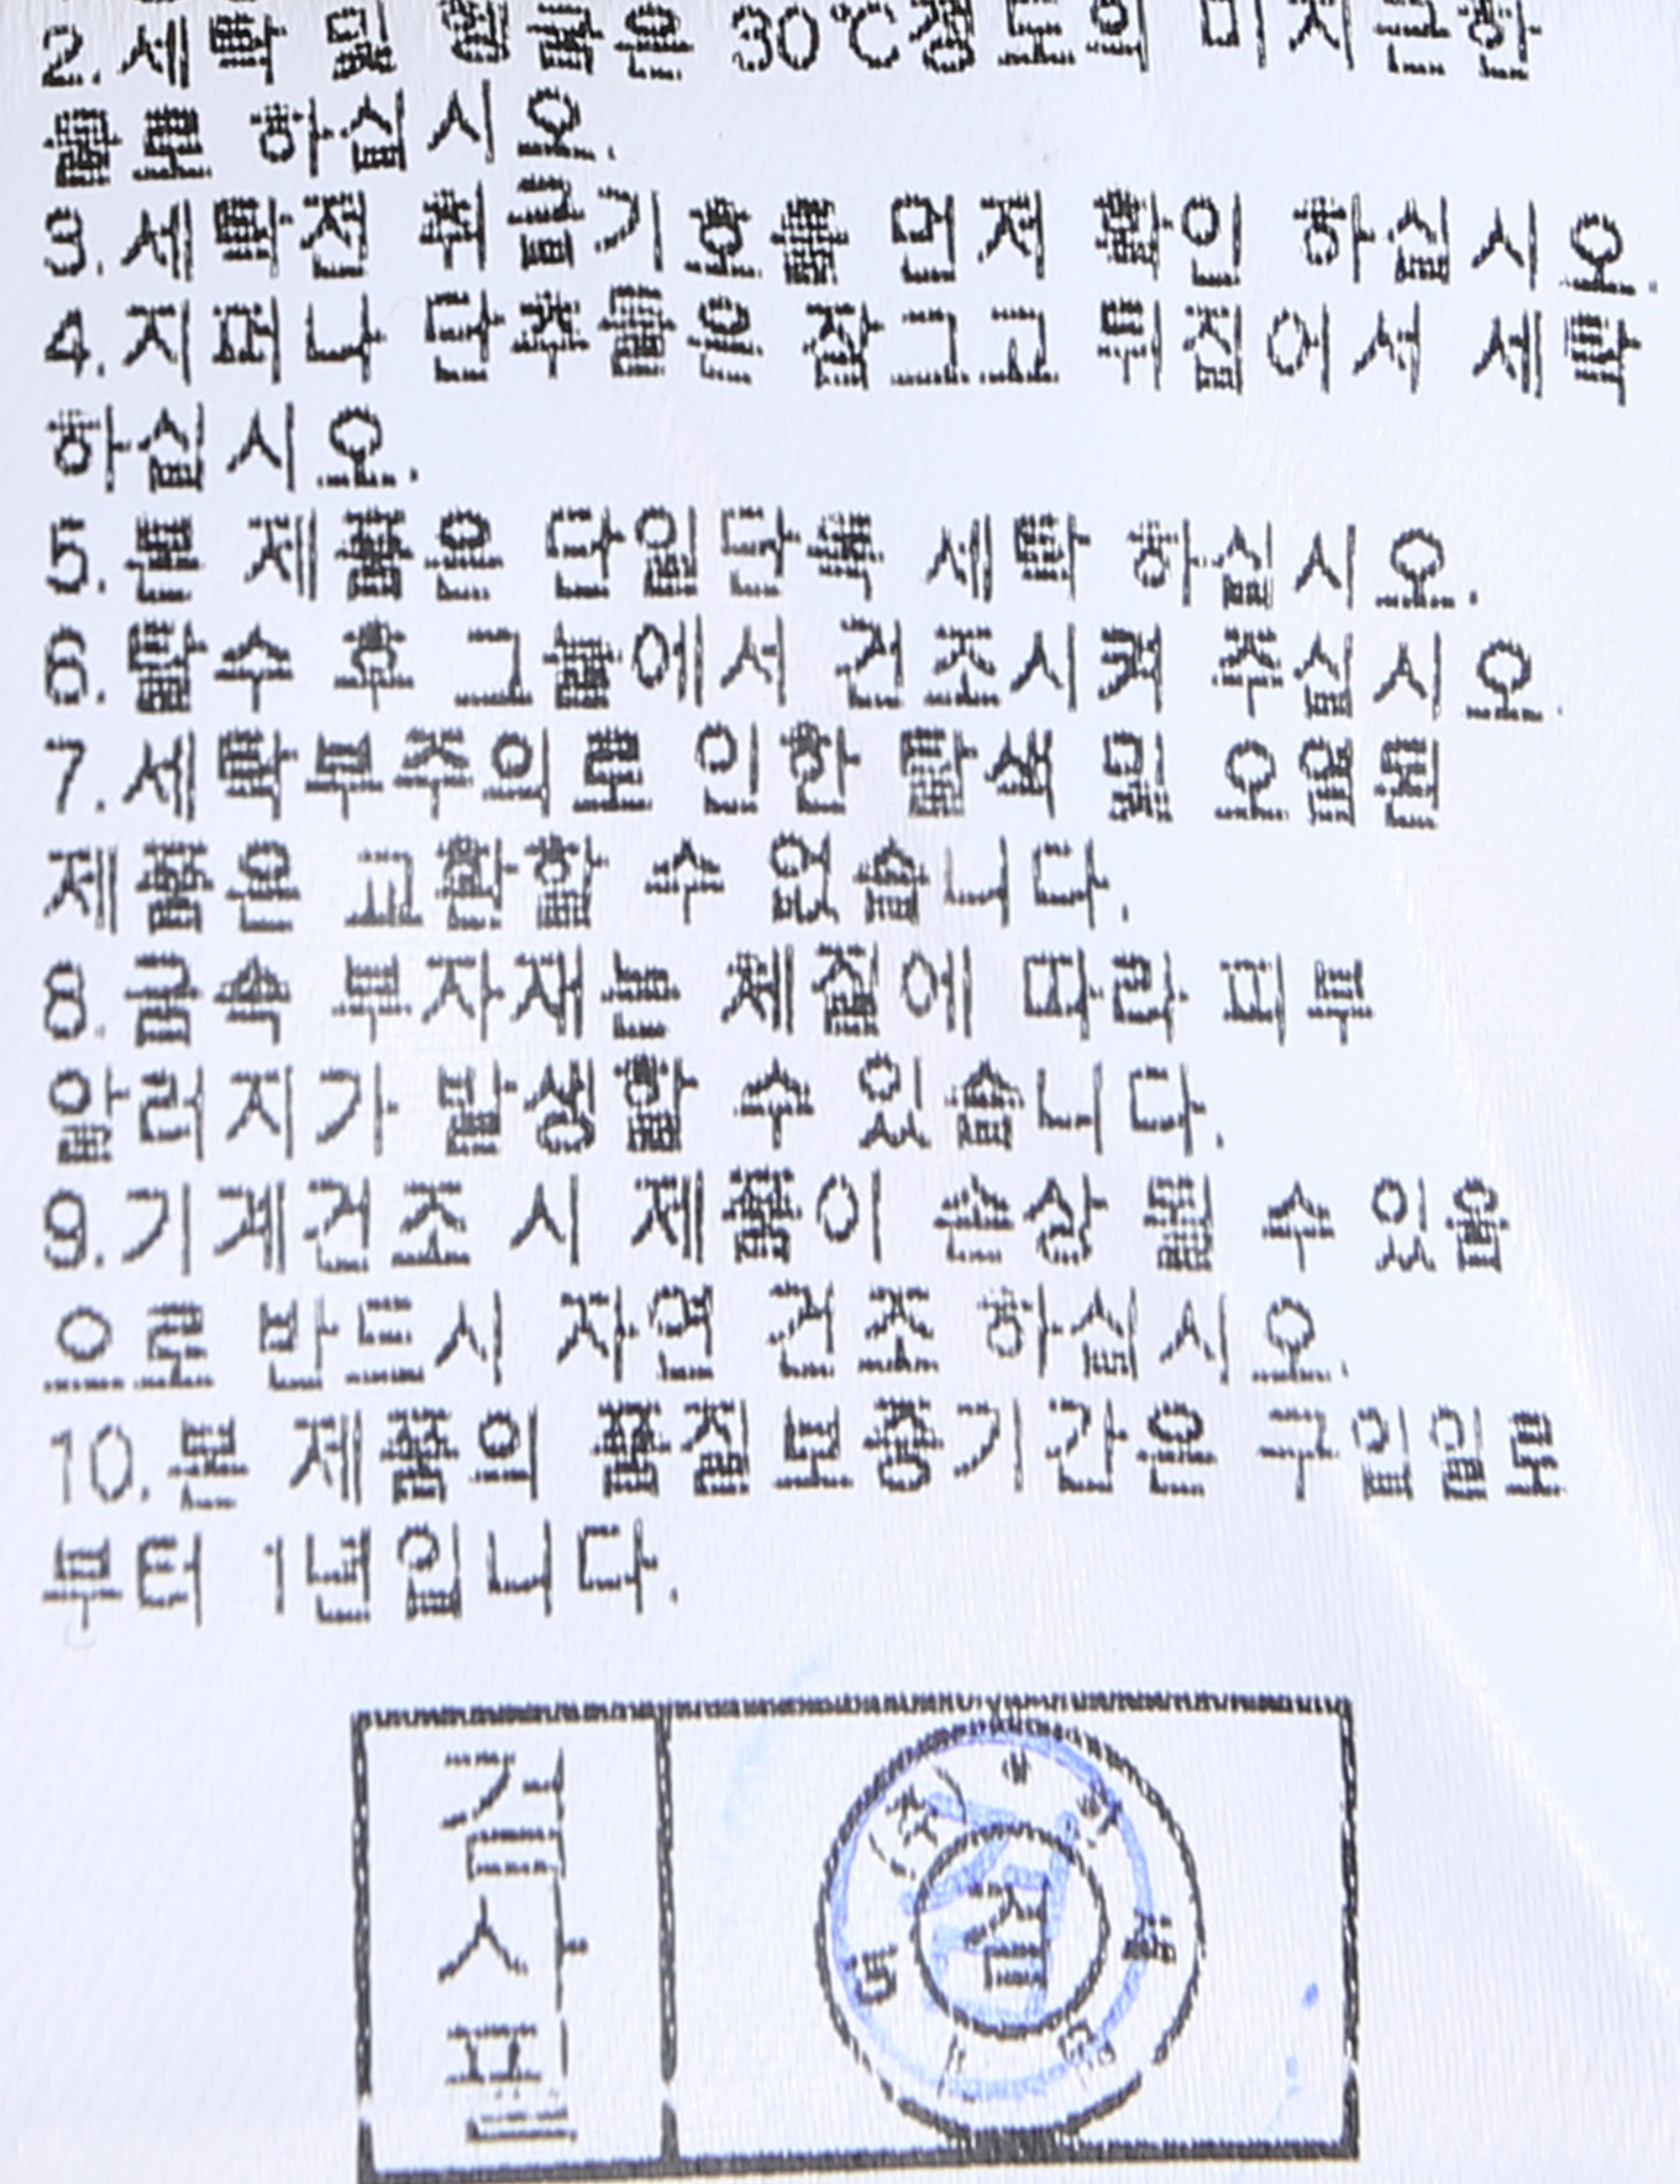 2. 세탁 및 헹굼은 30℃정도의 미지근한
물로 하십시오.
3. 세탁전 취급기호를 먼저 확인 하십시오.
4. 지퍼나 단추들은 잠그고 뒤집어서 세탁
하십시오.
5. 본 제품은 단일단독 세탁 하십시오.
6. 탈수 후 그늘에서 건조시켜 주십시오.
7. 세탁부주의로 인한 탈색 및 오염된
제품은 교환할 수 없습니다.
8. 금속 부자재는 체질에 따라 피부
알러지가 발생할 수 있습니다.
9. 기계건조 시 제품이 손상 될 수 있음
으로 반드시 자연 건조 하십시오.
10. 본 제품의 품질보증기간은 구입일로
부터 1년입니다.
검사필
검